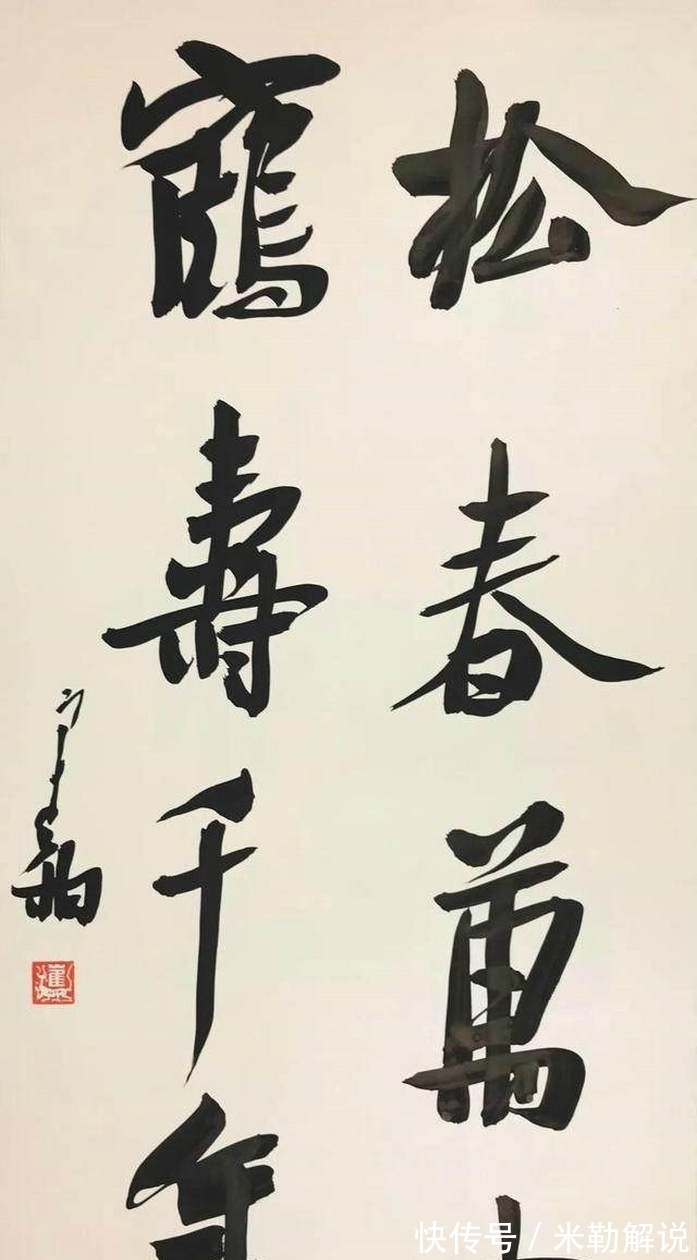 松春萬
鶴壽千年
快传号/米勒解说